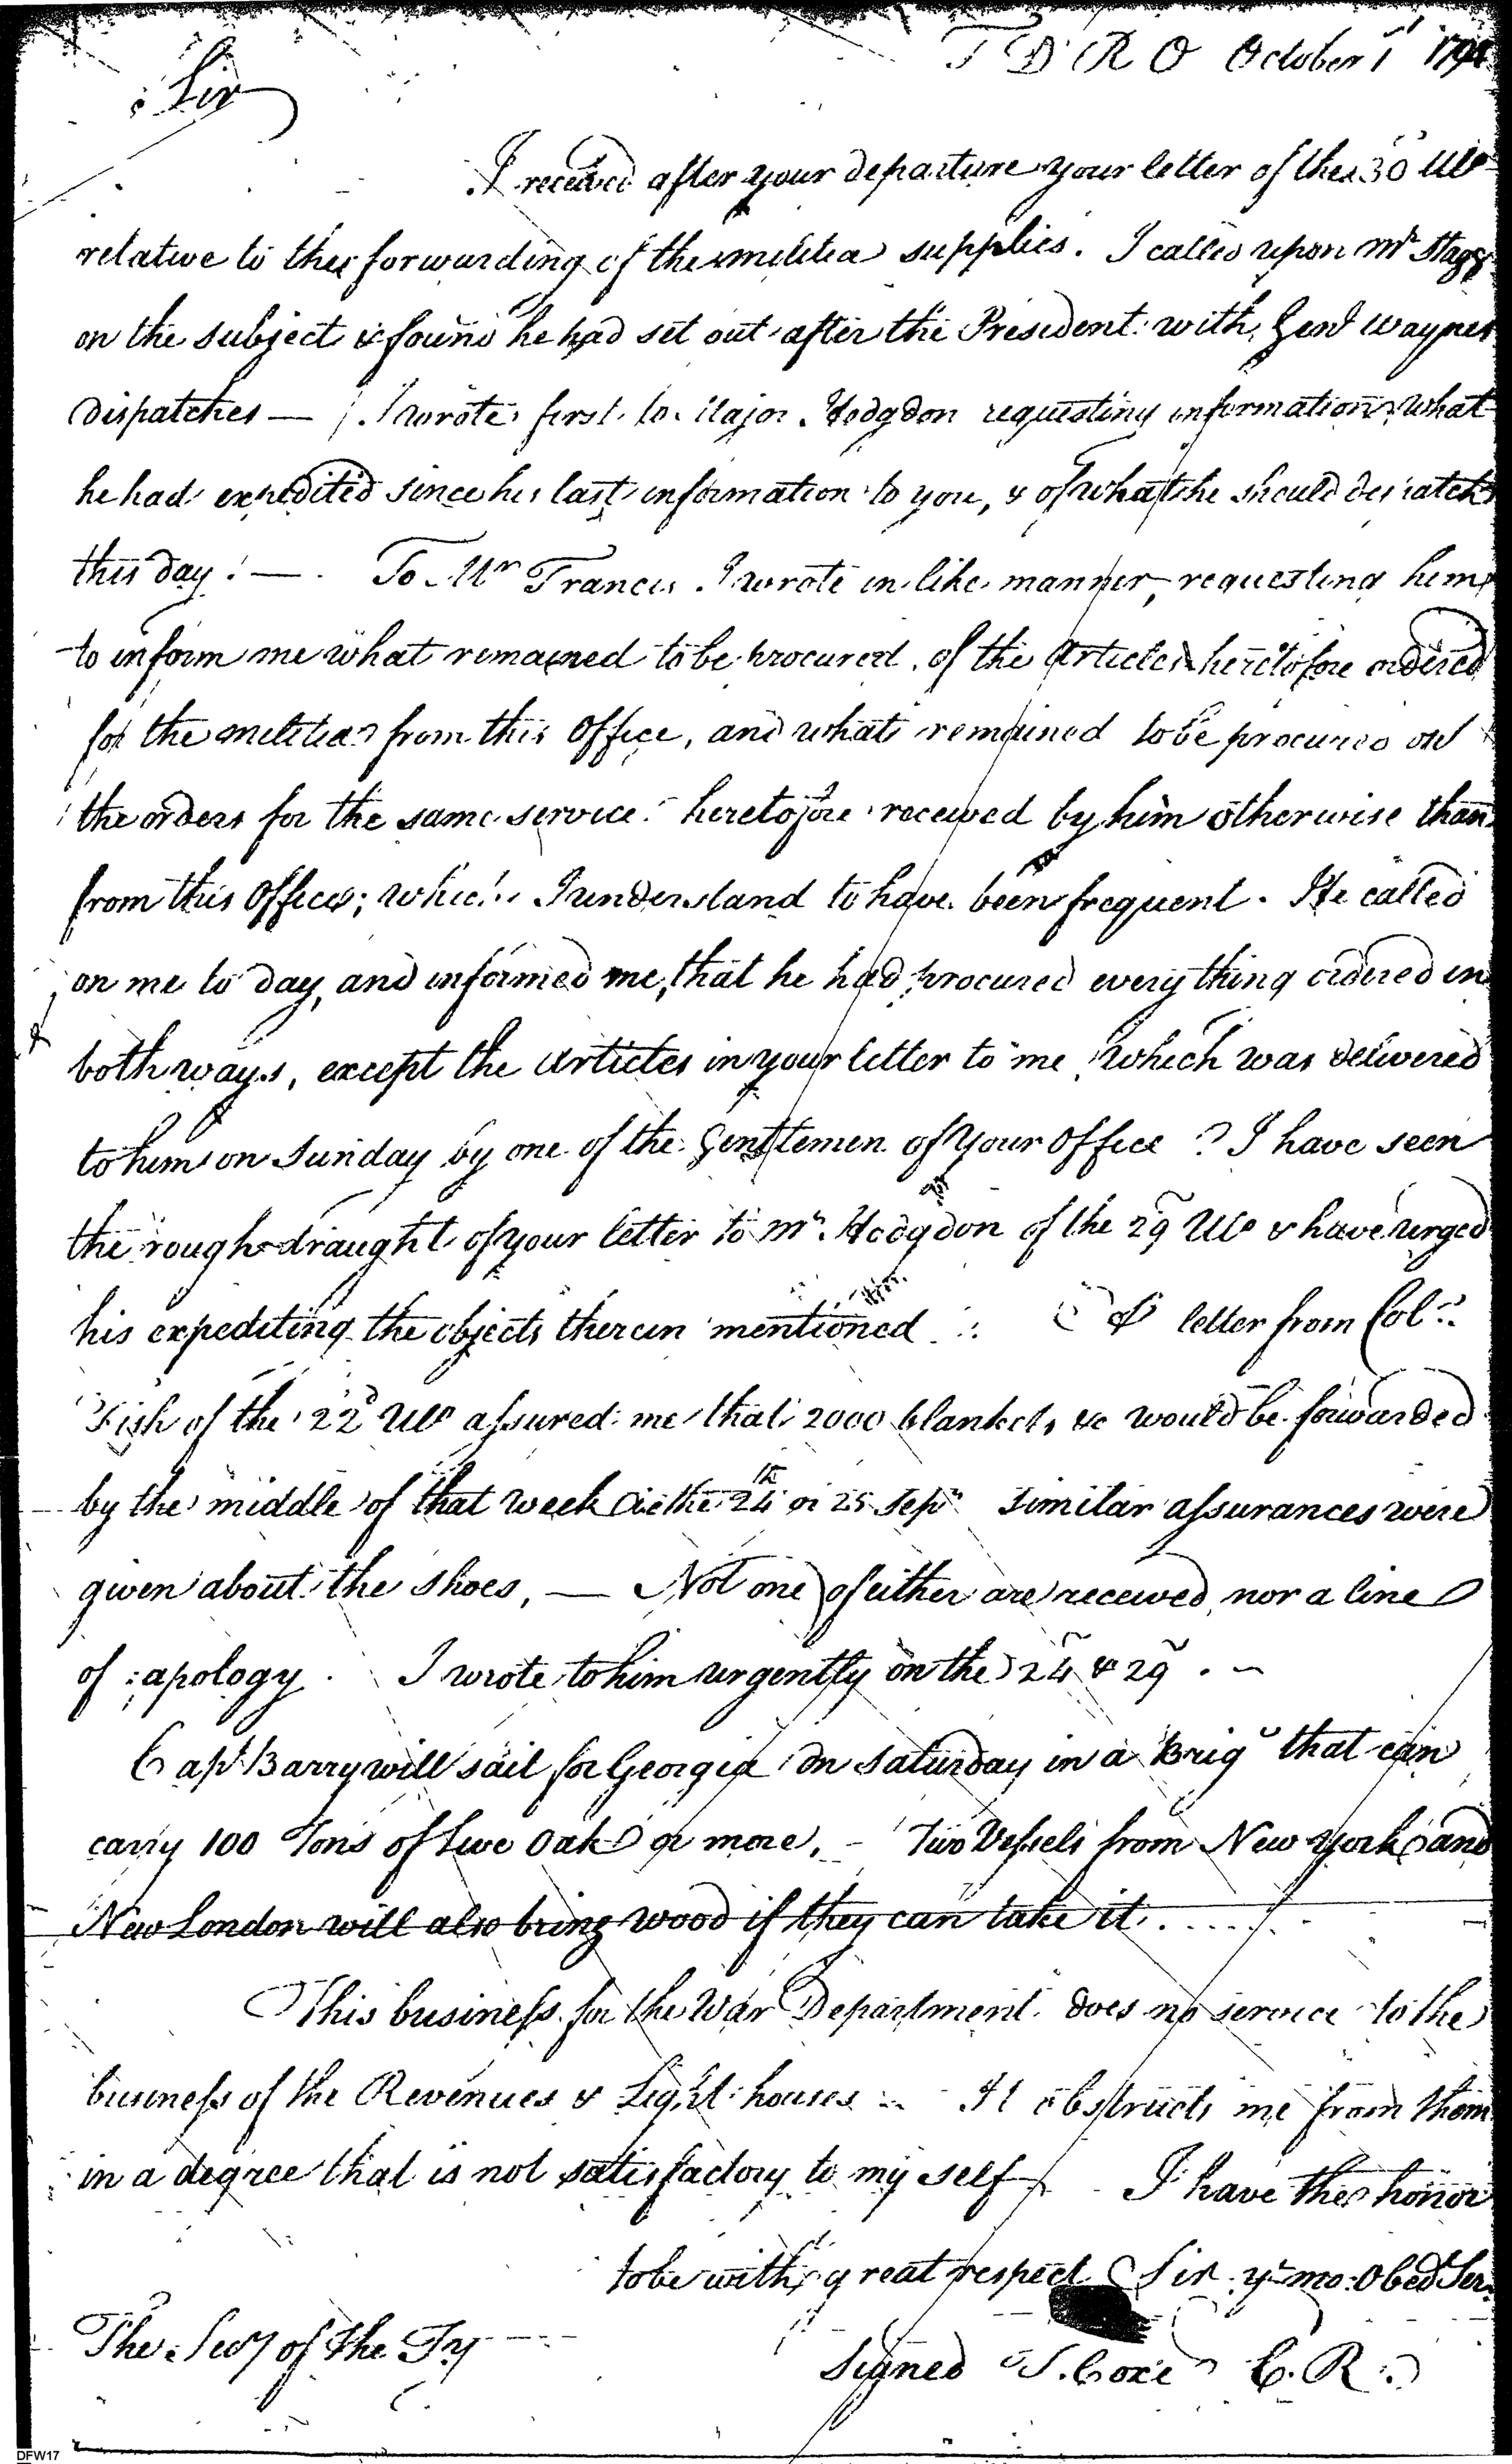 T D R O October 1st 1794
Sir
I received after your departure your letter of the 30 Ulo
relative to the forwarding of the militia supplies. I called upon Mr Stagg
on the subject & found he had set out after the President with Genl Waynes
dispatches — I wrote first to Major Hodgdon requesting information what
he had expedited since his last information to you, & of what he should despatch
this day. — To Mr Francis I wrote in like manner, requesting him
to inform me what remained to be procured of the articles heretofore ordered
for the militia from this Office, and what remained to be procured on
the orders for the same service heretofore received by him otherwise than
from this Office; which I understand to have been frequent. He called
on me to day, and informed me, that he had procured every thing ordered in
both ways, except the Articles in your letter to me, which was delivered
to him on Sunday by one of the Gentlemen of your Office. I have seen
the rough draught of your letter to Mr. Hodgdon of the 29 Ulo & have urged
his expediting the objects therein mentioned. A letter from Colo.
Fish of the 22d Ulo assured me that 2000 blankets &c would be forwarded
by the middle of that week ie the 24th or 25 Sepr. Similar assurances were
given about the shoes, — Not one of either are received, nor a line
of apology. I wrote to him urgently on the 24 & 29. —
Capt Barry will sail for Georgia on Saturday in a Brig that can
carry 100 Tons of Live Oak or more. — Two Vessels from New York and
New London will also bring wood if they can take it.....
This business for the War Department does no service to the
business of the Revenues & Light houses — It obstructs me from them
in a degree that is not satisfactory to my self — I have the honor
to be with great respect Sir yr mo: Obed Ser.
The Secy of the Ty
Signed T. Coxe C. R.
DFW17